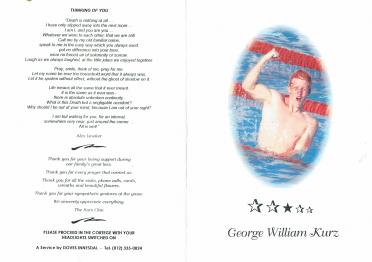 THINKING OF YOU
"Death is nothing at all ...
I have only slipped away into the next room ...
I am I, and you are you ...
Whatever we were to each other, that we are still.
Call me by my old familiar name,
speak to me in the easy way which you always used,
put no difference into your tone,
wear no forced air of solemnity or sorrow.
Laugh as we always laughed, at the little jokes we enjoyed together.
Pray, smile, think of me, pray for me.
Let my name be ever the household word that it always was.
Let it be spoken without effect, without the ghost of shadow on it.
Life means all the same that it ever meant.
It is the same as it ever was -
there is absolute unbroken continuity.
What is this Death but a negligible accident?
Why should I be out of your mind, because I am out of your sight?
I am but waiting for you, for an interval,
somewhere very near, just around the corner ...
All is well"
Thank you for your loving support during
our family's great loss.
Thank you for every prayer that comfort us.
Thank you for all the visits, phone calls, cards,
wreaths and beautiful flowers.
Thank you for your sympathetic gestures at the grave.
We sincerely appreciate everything.
The Kurz Clan.
PLEASE PROCEED IN THE CORTEGE WITH YOUR
HEADLIGHTS SWITCHED ON
A Service by DOVES INNESDAL - Tel. (012) 335-0824
George William Kurz